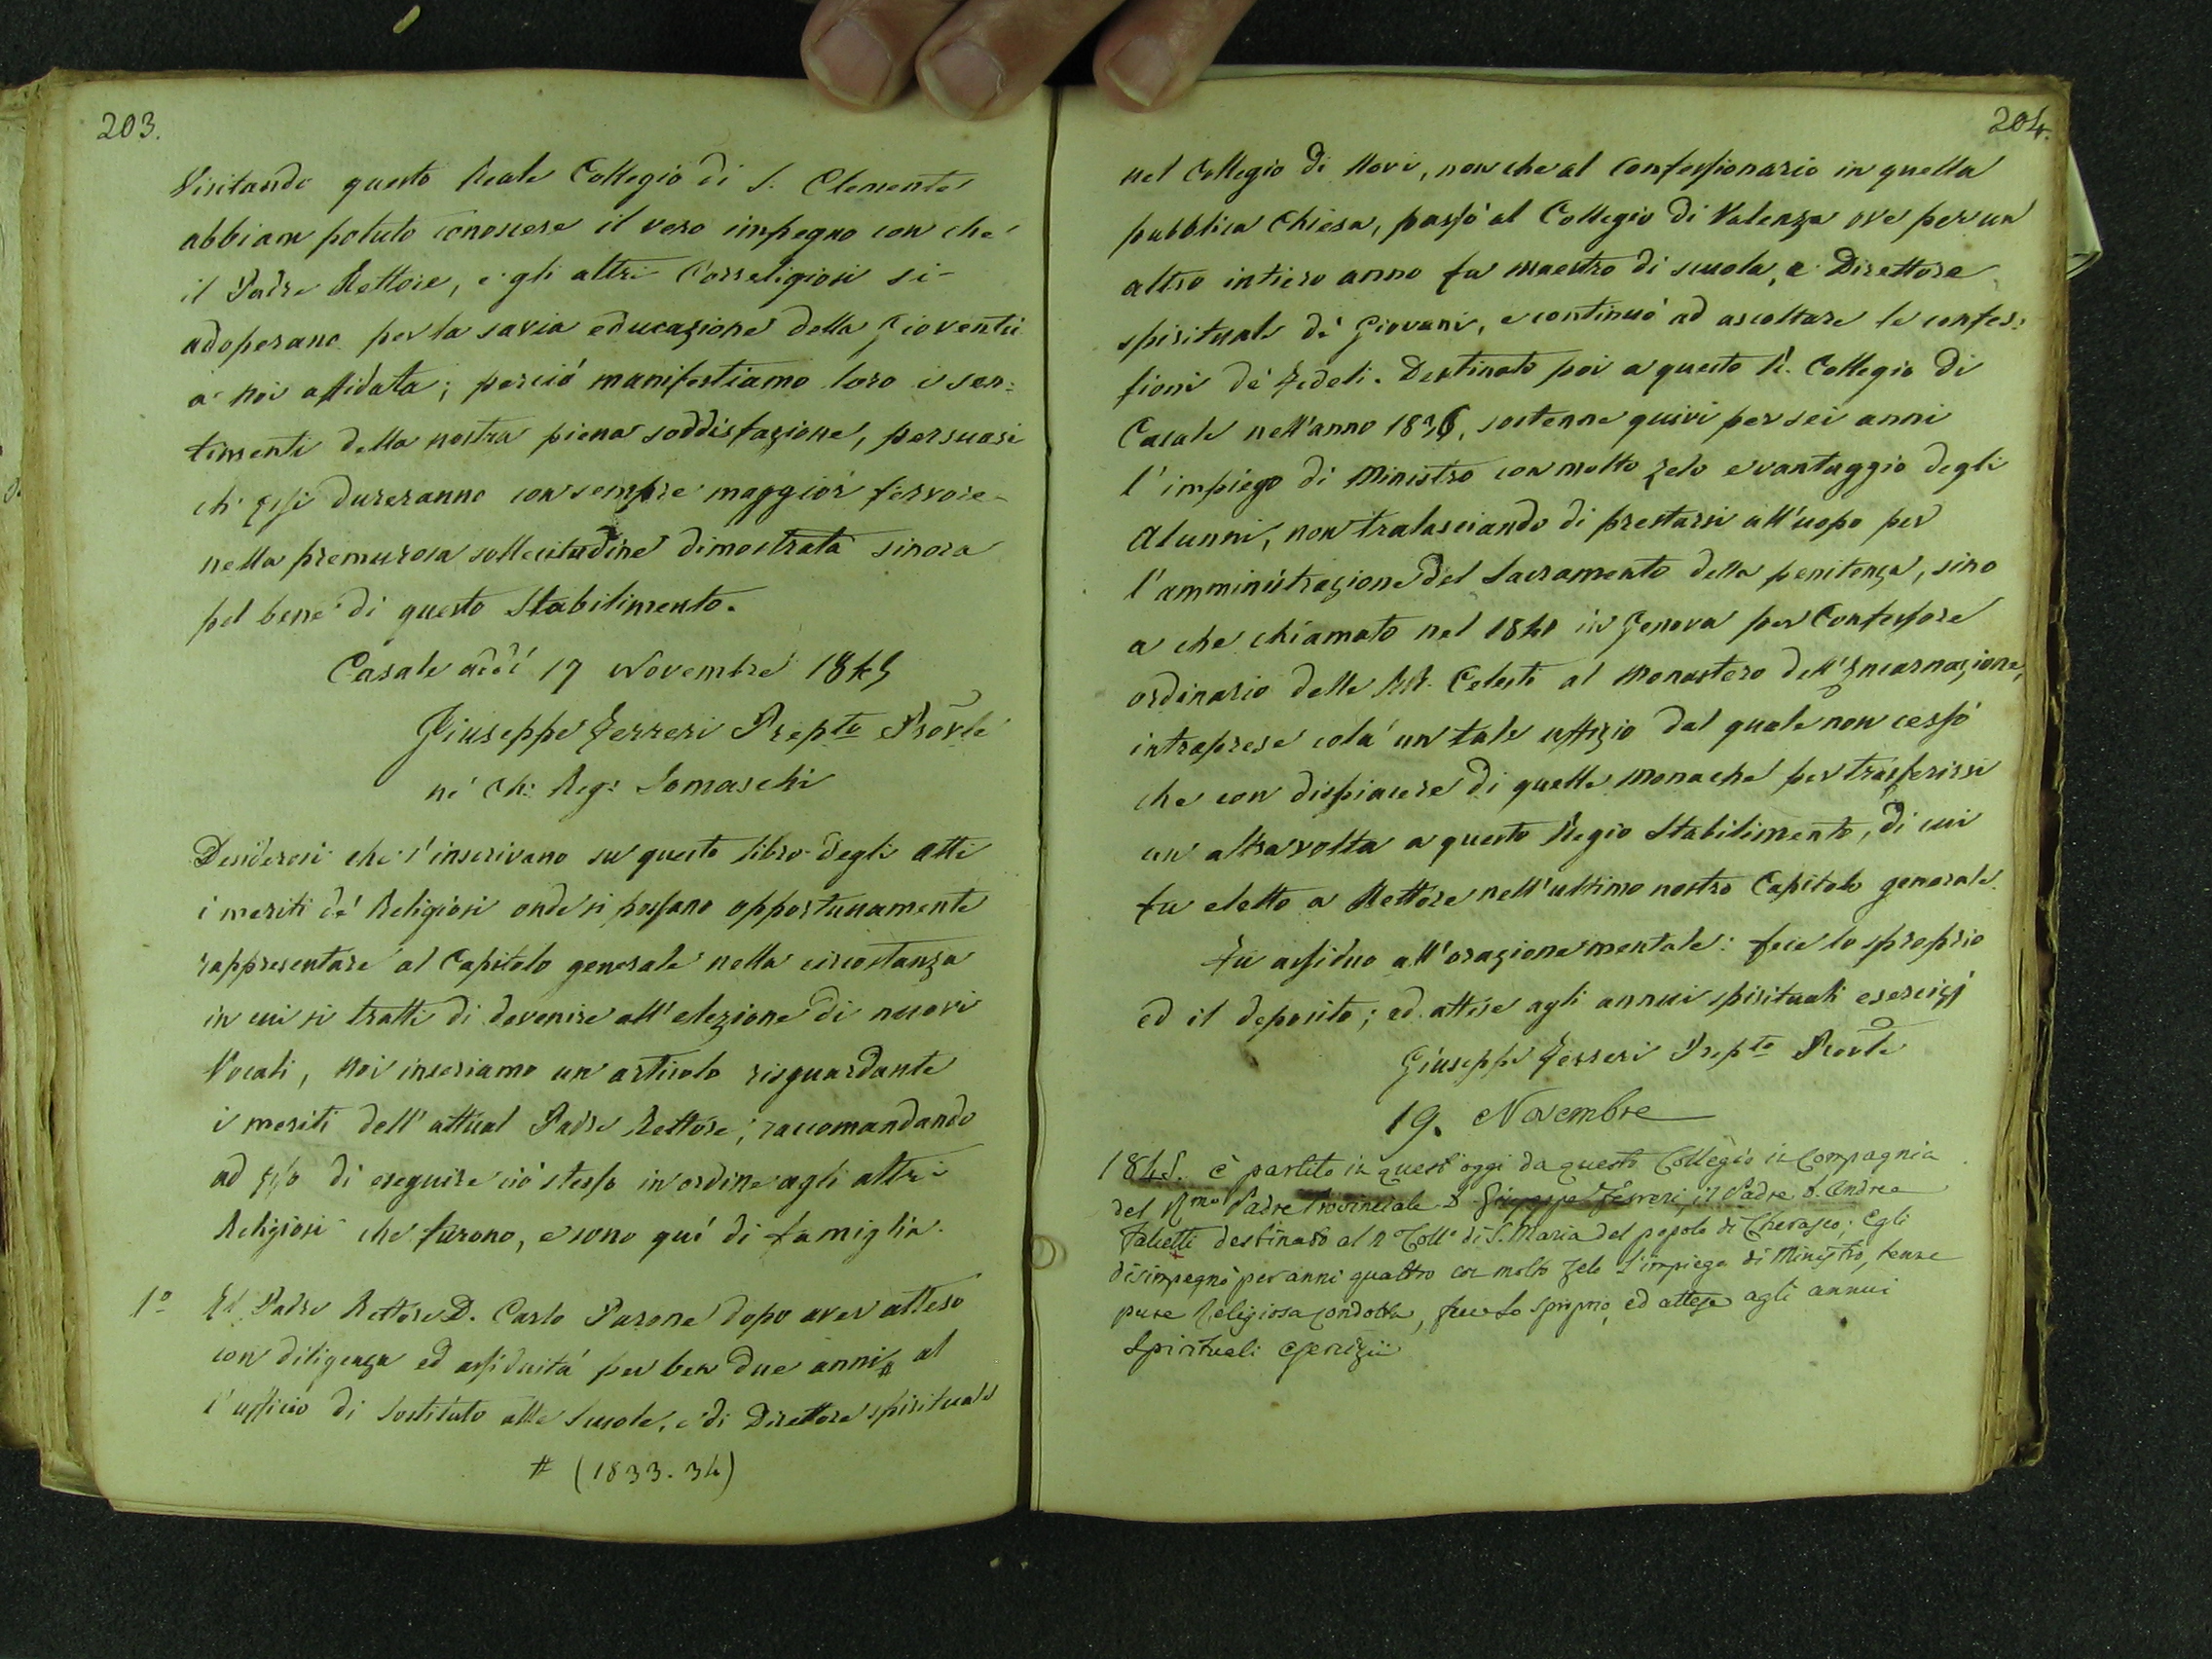 203.
Visitando questo Reale Collegio di S. Clemente
abbiam potuto conoscere il vero impegno con che
il Padre Rettore, e gli altri Correligiosi si
adoperano per la savia educazione della Gioventù
a noi affidata; perciò manifestiamo loro i sen:
timenti della nostra piena soddisfazione, persuasi
ch'essi dureranno con sempre maggior fervore
nella premurosa sollecitudine dimostrata sinora
pel bene di questo Stabilimento.
Casale addì 17 Novembre 1845
Giuseppe Ferreri Prepto Provle
ne' Ch: Reg: Somaschi
Desiderosi che s'inscrivano su questo libro degli atti
i meriti de' Religiosi onde si possano opportunamente
rappresentare al Capitolo generale nella circostanza
in cui si tratti di devenire all'elezione di nuovi
Vocali, Noi inseriamo un articolo risguardante
i meriti dell'attual Padre Rettore; raccomandando
ad esso di eseguire ciò stesso in ordine agli altri
Religiosi che furono, e sono quì di famiglia.
1o Il Padre Rettore D. Carlo Parone dopo aver atteso
con diligenza ed assiduità per ben due anni # al
l'ufficio di Sostituto alle Scuole, e di Direttore spirituale
# (1833. 34)
204.
nel Collegio di Novi, non che al confessionario in quella
pubblica Chiesa, passò al Collegio di Valenza ove per un
altro intiero anno fu maestro di scuola, e Direttore
spirituale de' Giovani, e continuò ad ascoltare le confes:
sioni de' Fedeli. Destinato poi a questo R. Collegio di
Casale nell'anno 1836, sostenne quivi per sei anni
l'impiego di Ministro con molto zelo e vantaggio degli
Alunni, non tralasciando di prestarsi all'uopo per
l'amministrazione del Sacramento della penitenza, sino
a che chiamato nel 1841 in Genova per Confessore
ordinario delle RR. Celesti al Monastero dell'Incarnazione,
intraprese colà un tale uffizio dal quale non cessò
che con dispiacere di quelle Monache per trasferirsi
un altra volta a questo Regio Stabilimento, di cui
fu eletto a Rettore nell'ultimo nostro Capitolo generale.
Fu assiduo all'orazione mentale: fece lo sproprio
ed il deposito; ed attese agli annui spirituali esercizj
Giuseppe Ferreri Prepto Provle
19. Novembre
1845. è partito in quest'oggi da questo Collegio in compagnia
del Rmo Padre Provinciale D. Giuseppe Ferreri, il Padre D. Andrea
Faletti destinato al R Collo di S. Maria del popolo di Cherasco; Egli
disimpegnò per anni quattro con molto zelo l'impiego di Ministro, tenne
pure Religiosa condotta, fece lo sproprio, ed attese agli annui
Spirituali esercizii